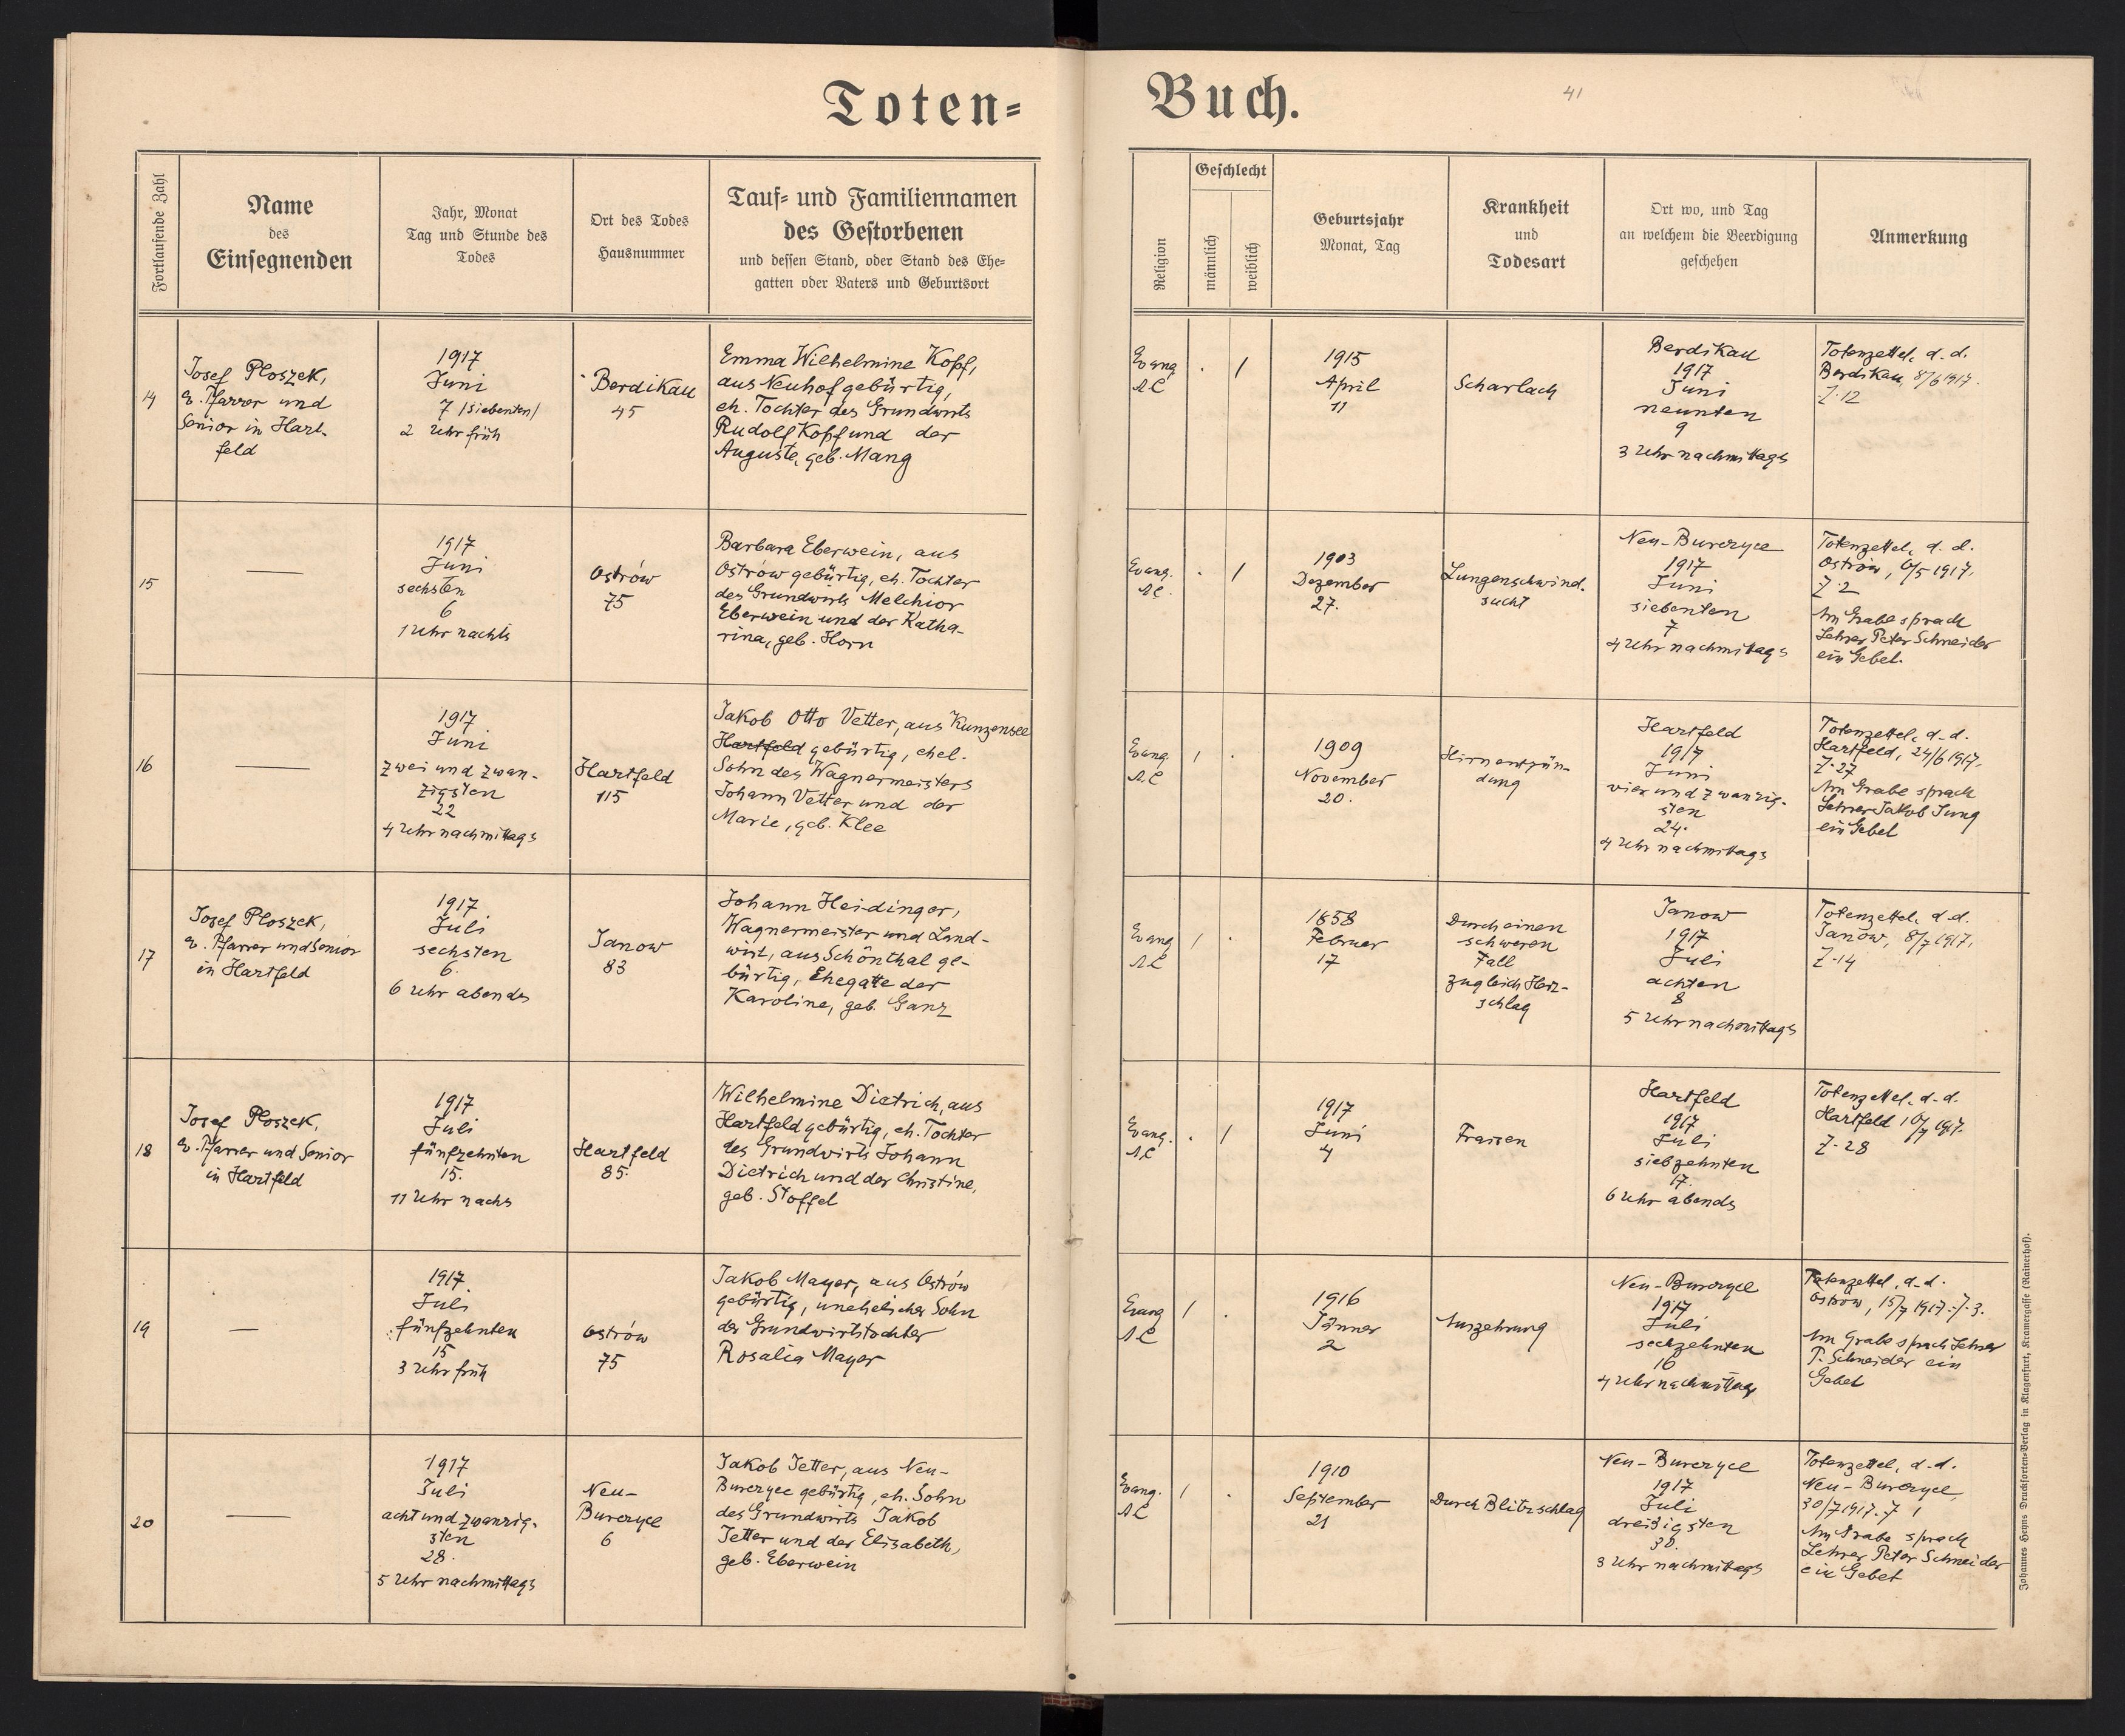 Toten=
Buch.
41
Fortlaufende Zahl
Name
des
Einsegnenden
Jahr, Monat
Tag und Stunde des
Todes
Ort des Todes
Hausnummer
Tauf= und Familiennamen
des Gestorbenen
und dessen Stand, oder Stand des Ehe=
gatten oder Vaters und Geburtsort
Religion
Geschlecht
männlich
weiblich
Geburtsjahr
Monat, Tag
Krankheit
und
Todesart
Ort wo, und Tag
an welchem die Beerdigung
geschehen
Anmerkung
14
Josef Ploszek,
ev. Pfarrer und
Senior in Hart-
feld
1917
Juni
7 /siebenten/
2 Uhr früh
Berdikau
45
Emma Wilhelmine Kopf,
aus Neuhof gebürtig,
eh. Tochter des Grundwirts
Rudolf Kopf und der
Auguste, geb. Mang
Evang
A.C
. /
1915
April
11
Scharlach
Berdikau
1917
Juni
neunten
9
3 Uhr nachmittags
Totenzettel, d. d.
Berdikau, 8/6 1917.
Z. 12
15
—
1917
Juni
sechsten
6
1 Uhr nachts
Ostrów
75
Barbara Eberwein, aus
Ostrów gebürtig, eh. Tochter
des Grundwirts Melchior
Eberwein und der Katha-
rina, geb. Horn
Evang.
A.C.
. /
1903
Dezember
27.
Lungenschwind-
sucht
Neu-Burczyce
1917
Juni
siebenten
7
4 Uhr nachmittags
Totenzettel, d. d.
Ostrów, 6/5 1917.
Z. 2
Am Grabe sprach
Lehrer Peter Schneider
ein Gebet.
16
—
1917
Juni
zwei und zwan-
zigsten
22
4 Uhr nachmittags
Hartfeld
115
Jakob Otto Vetter, aus Kunzensee
Hartfeld gebürtig, ehel.
Sohn des Wagnermeisters
Johann Vetter und der
Marie, geb. Klee
Evang.
A.C
/ .
1909
November
20.
Hirnentzün-
dung
Hartfeld
1917
Juni
vier und zwanzig-
sten
24.
4 Uhr nachmittags
Totenzettel, d. d.
Hartfeld, 24/6 1917.
Z. 27
Am Grabe sprach
Lehrer Jakob Jung
ein Gebet
17
Josef Ploszek,
ev. Pfarrer und Senior
in Hartfeld
1917
Juli
sechsten
6.
6 Uhr abends
Janow
83
Johann Heidinger,
Wagnermeister und Land-
wirt, aus Schönthal ge-
bürtig, Ehegatte der
Karoline, geb. Ganz
Evang
A.C
/ .
1858
Februer
17
Durch einen
schweren
Fall
zugleich Herz-
schlag
Janow
1917
Juli
achten
8
5 Uhr nachmittags
Totenzettel, d. d.
Janow, 8/7 1917.
Z. 14
18
Josef Ploszek,
ev. Pfarrer und Senior
in Hartfeld
1917
Juli
fünfzehnten
15.
11 Uhr nachs
Hartfeld
85.
Wilhelmine Dietrich, aus
Hartfeld gebürtig, eh. Tochter
des Grundwirts Johann
Dietrich und der Christine,
geb. Stoffel
Evang.
A.C
. /
1917
Juni
4
Fraisen
Hartfeld
1917
Juli
siebzehnten
17.
6 Uhr abends
Totenzettel. d. d.
Hartfeld 1917.
Z. 28
19
—
1917
Juli
fünfzehnten
15
3 Uhr früh
Ostrów
75
Jakob Mayer, aus Ostrów
gebürtig, unehelicher Sohn
der Grundwirtstochter
Rosalia Mayer
Evang
A.C
/ .
1916
Jänner
2
Auszehrung
Neu-Burczyce
1917
Juli
sechzehnten
16
4 Uhr nachmittags
Totenzettel, d. d.
Ostrow, 15/7 1917. Z. 3.
Am Grabe sprach Lehrer
P. Schneider ein
Gebet
20
—
1917
Juli
acht und zwanzig-
sten
28.
5 Uhr nachmittags
Neu-
Burczyce
6
Jakob Jetter, aus Neu-
Burczyce gebürtig, eh. Sohn
des Grundwirts Jakob
Jetter und der Elisabeth,
geb. Eberwein
Evang.
A.C
/ .
1910
September
21
Durch Blitzschlag
Neu-Burczyce
1917
Juli
dreißigsten
30.
3 Uhr nachmittags
Totenzettel, d. d.
Neu-Burczyce,
30/7 1917. Z 1
Am Grabe sprach
Lehrer Peter Schneider
ein Gebet
Johannes Heyns Drucksorten=Verlag in Klagenfurt, Kramergasse (Rainerhof).